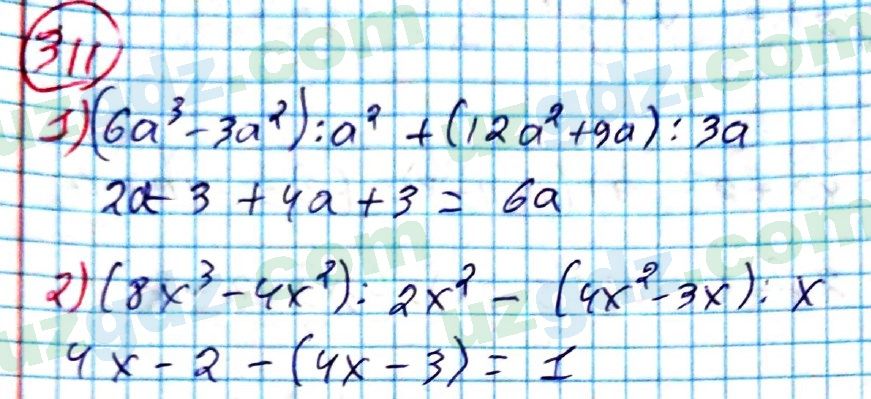 311
1) (6a³ - 3a²) : a² + (12a² + 9a) : 3a
2a - 3 + 4a + 3 = 6a
2) (8x³ - 4x²) : 2x² - (4x² - 3x) : x
4x - 2 - (4x - 3) = 1
uzgdz.com